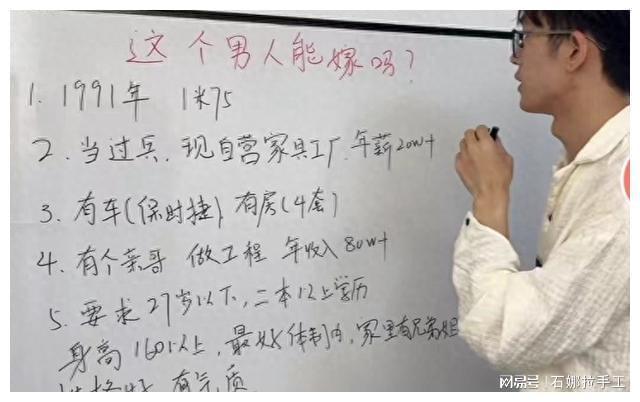 这个男人能嫁吗？
1. 1991年 1米75
2. 当过兵. 现自营家具工厂. 年薪20w+
3. 有车(保时捷) 有房(4套)
4. 有个亲哥 做工程 年收入80w+
5. 要求27岁以下, 二本以上学历
身高160以上, 最好体制内, 家里有兄弟姐
性格好 有气质
网易号 | 石娜拉手工